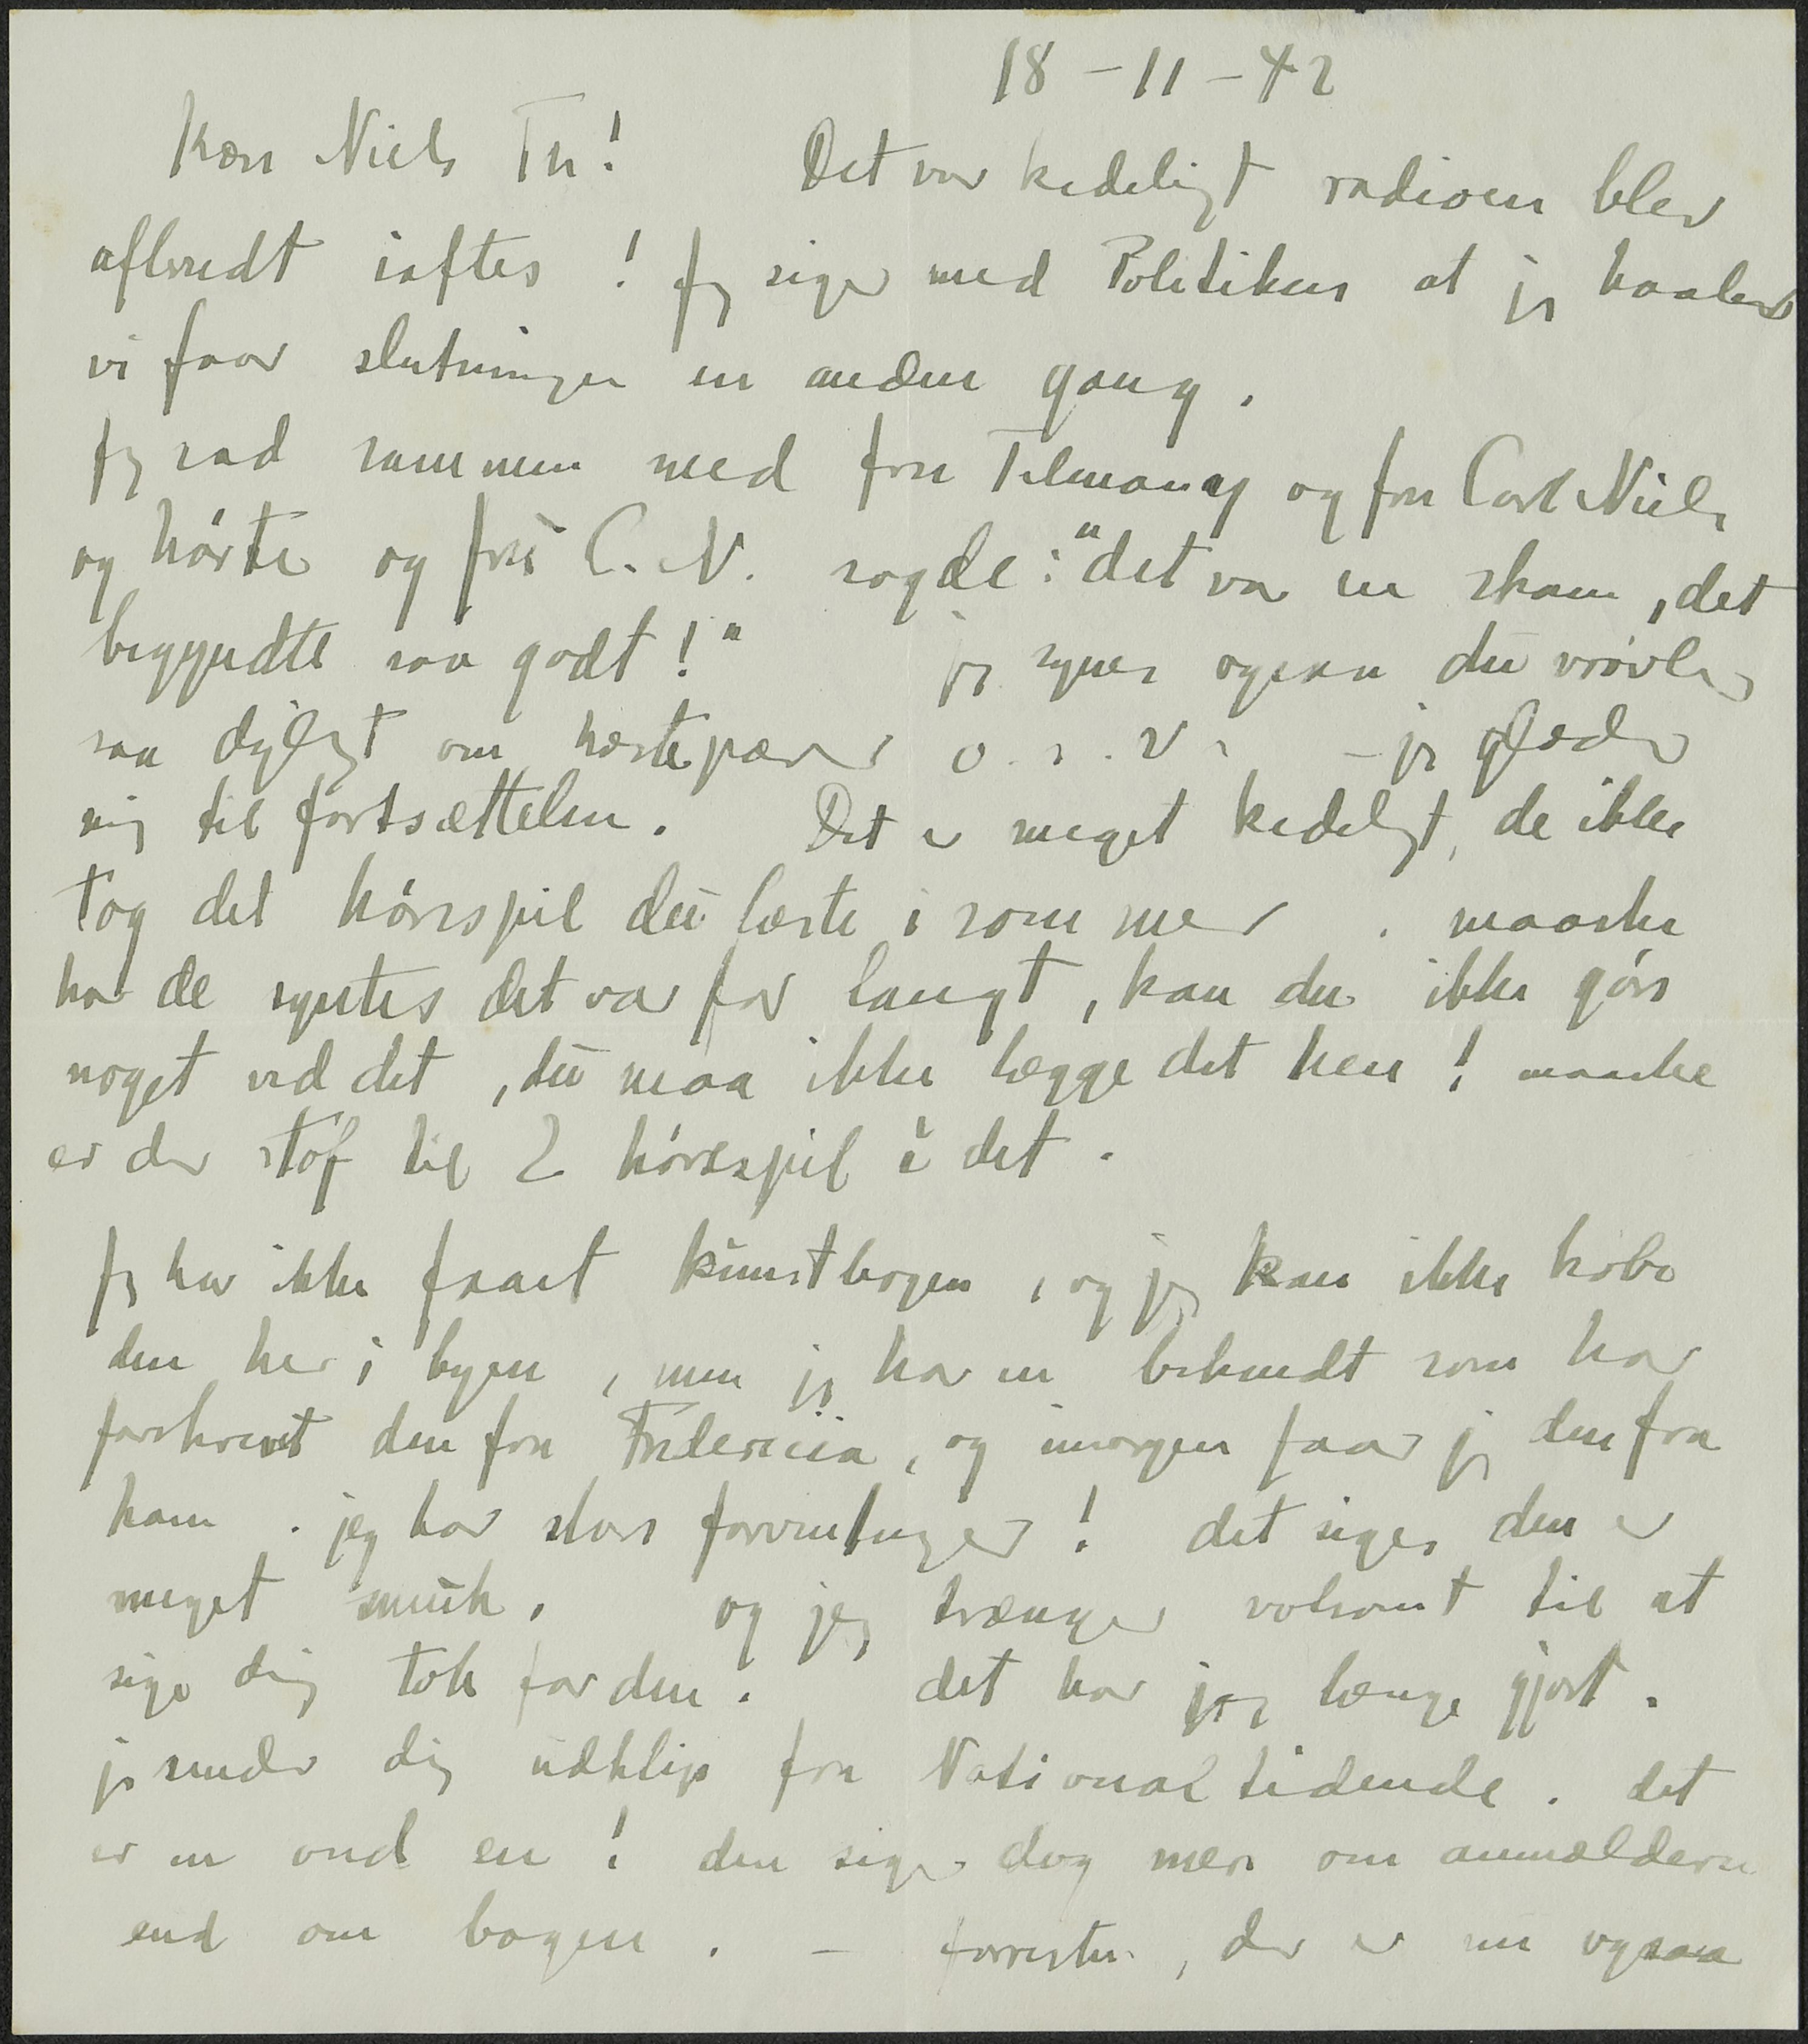 18-11-42
Kære Niels Th! Det var kedeligt radioen blev
afbrudt iaftes! Jeg siger med Politiken at jeg haaber
vi faar slutningen en anden gang.
Jeg sad sammen med fru Telmany og fru Carl Niels
og hørte og fru C. N. sagde: "det var en skam, det
begyndte saa godt!" jeg synes ogsaa du vrøvler
saa dejligt om hestepærer o. s. v. - jeg glæder
mig til fortsættelsen. Det er meget kedeligt, de ikke
tog det hørespil du læste i sommer. maaske
har de syntes det var for langt, kan du ikke gøre
noget ved det, du maa ikke lægge det hen! maaske
er der stof til 2 hørespil i det.
Jeg har ikke faaet kunstbogen, og jeg kan ikke købe
den her i byen, men jeg har en bekendt som har
forskrevet den fra Fredericia, og imorgen faar jeg den fra
ham. jeg har store forventninger! det siges den er
meget smuk. og jeg trænger voldsomt til at
sige dig tak for den. det har jeg længe gjort.
jeg sender dig udklip fra Nationaltidende. det
er en ond en! den siger dog mere om anmelderen
end om bogen. - forresten, der er nu ogsaa